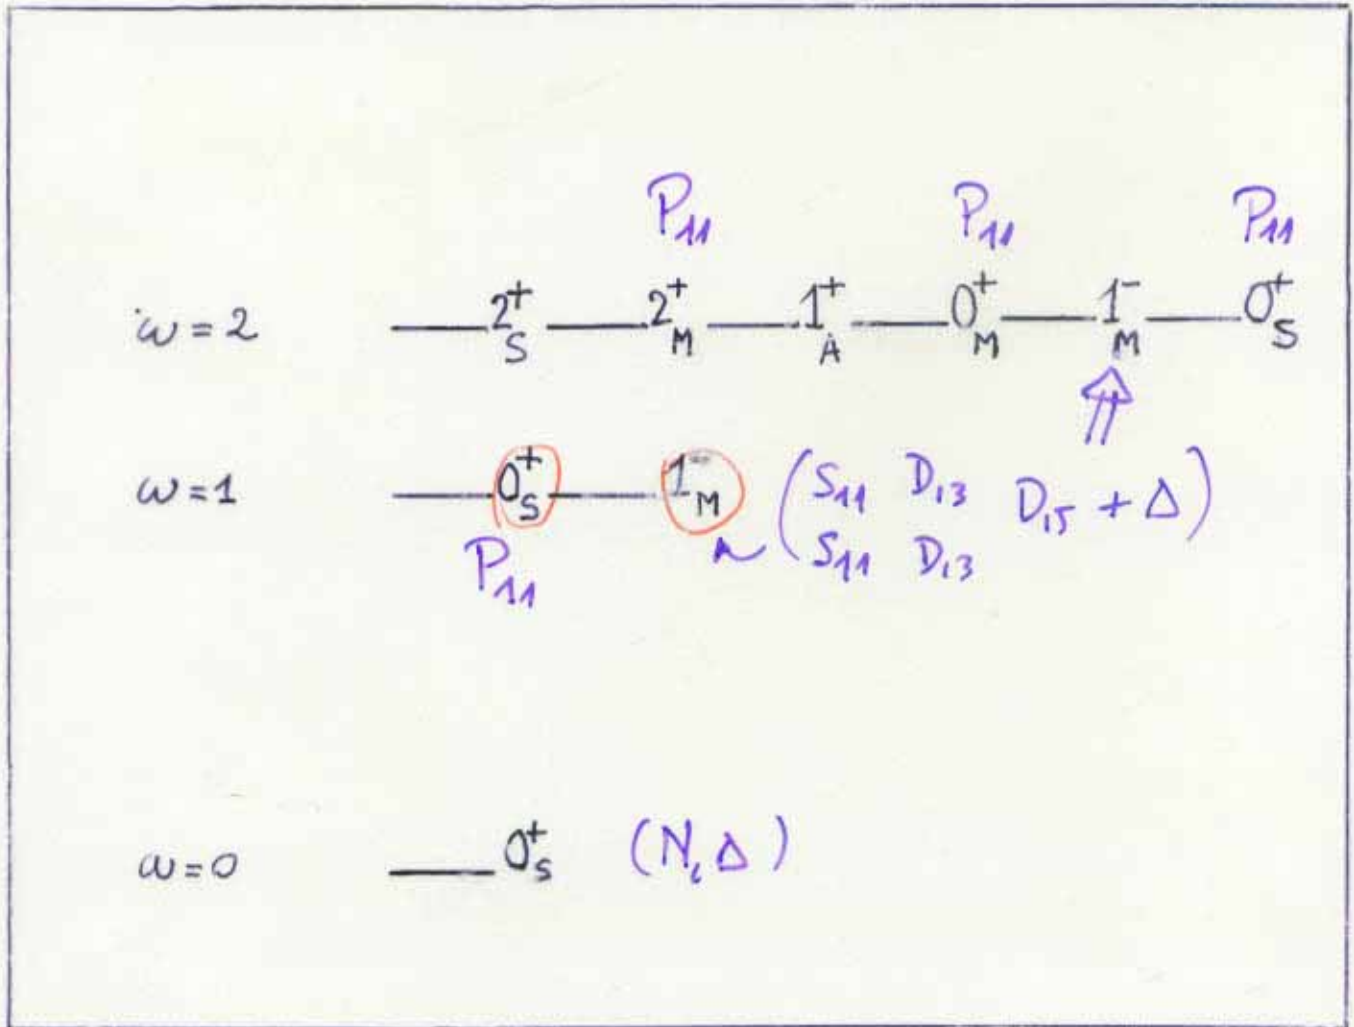 P₁₁ P₁₁ P₁₁
ω = 2 2⁺S 2⁺M 1⁺A 0⁺M 1⁻M 0⁺S
⇑
ω = 1 0⁺S 1⁻M ~ ( S₁₁ D₁₃ D₁₅ + Δ )
P₁₁ S₁₁ D₁₃
ω = 0 0⁺S (N, Δ)